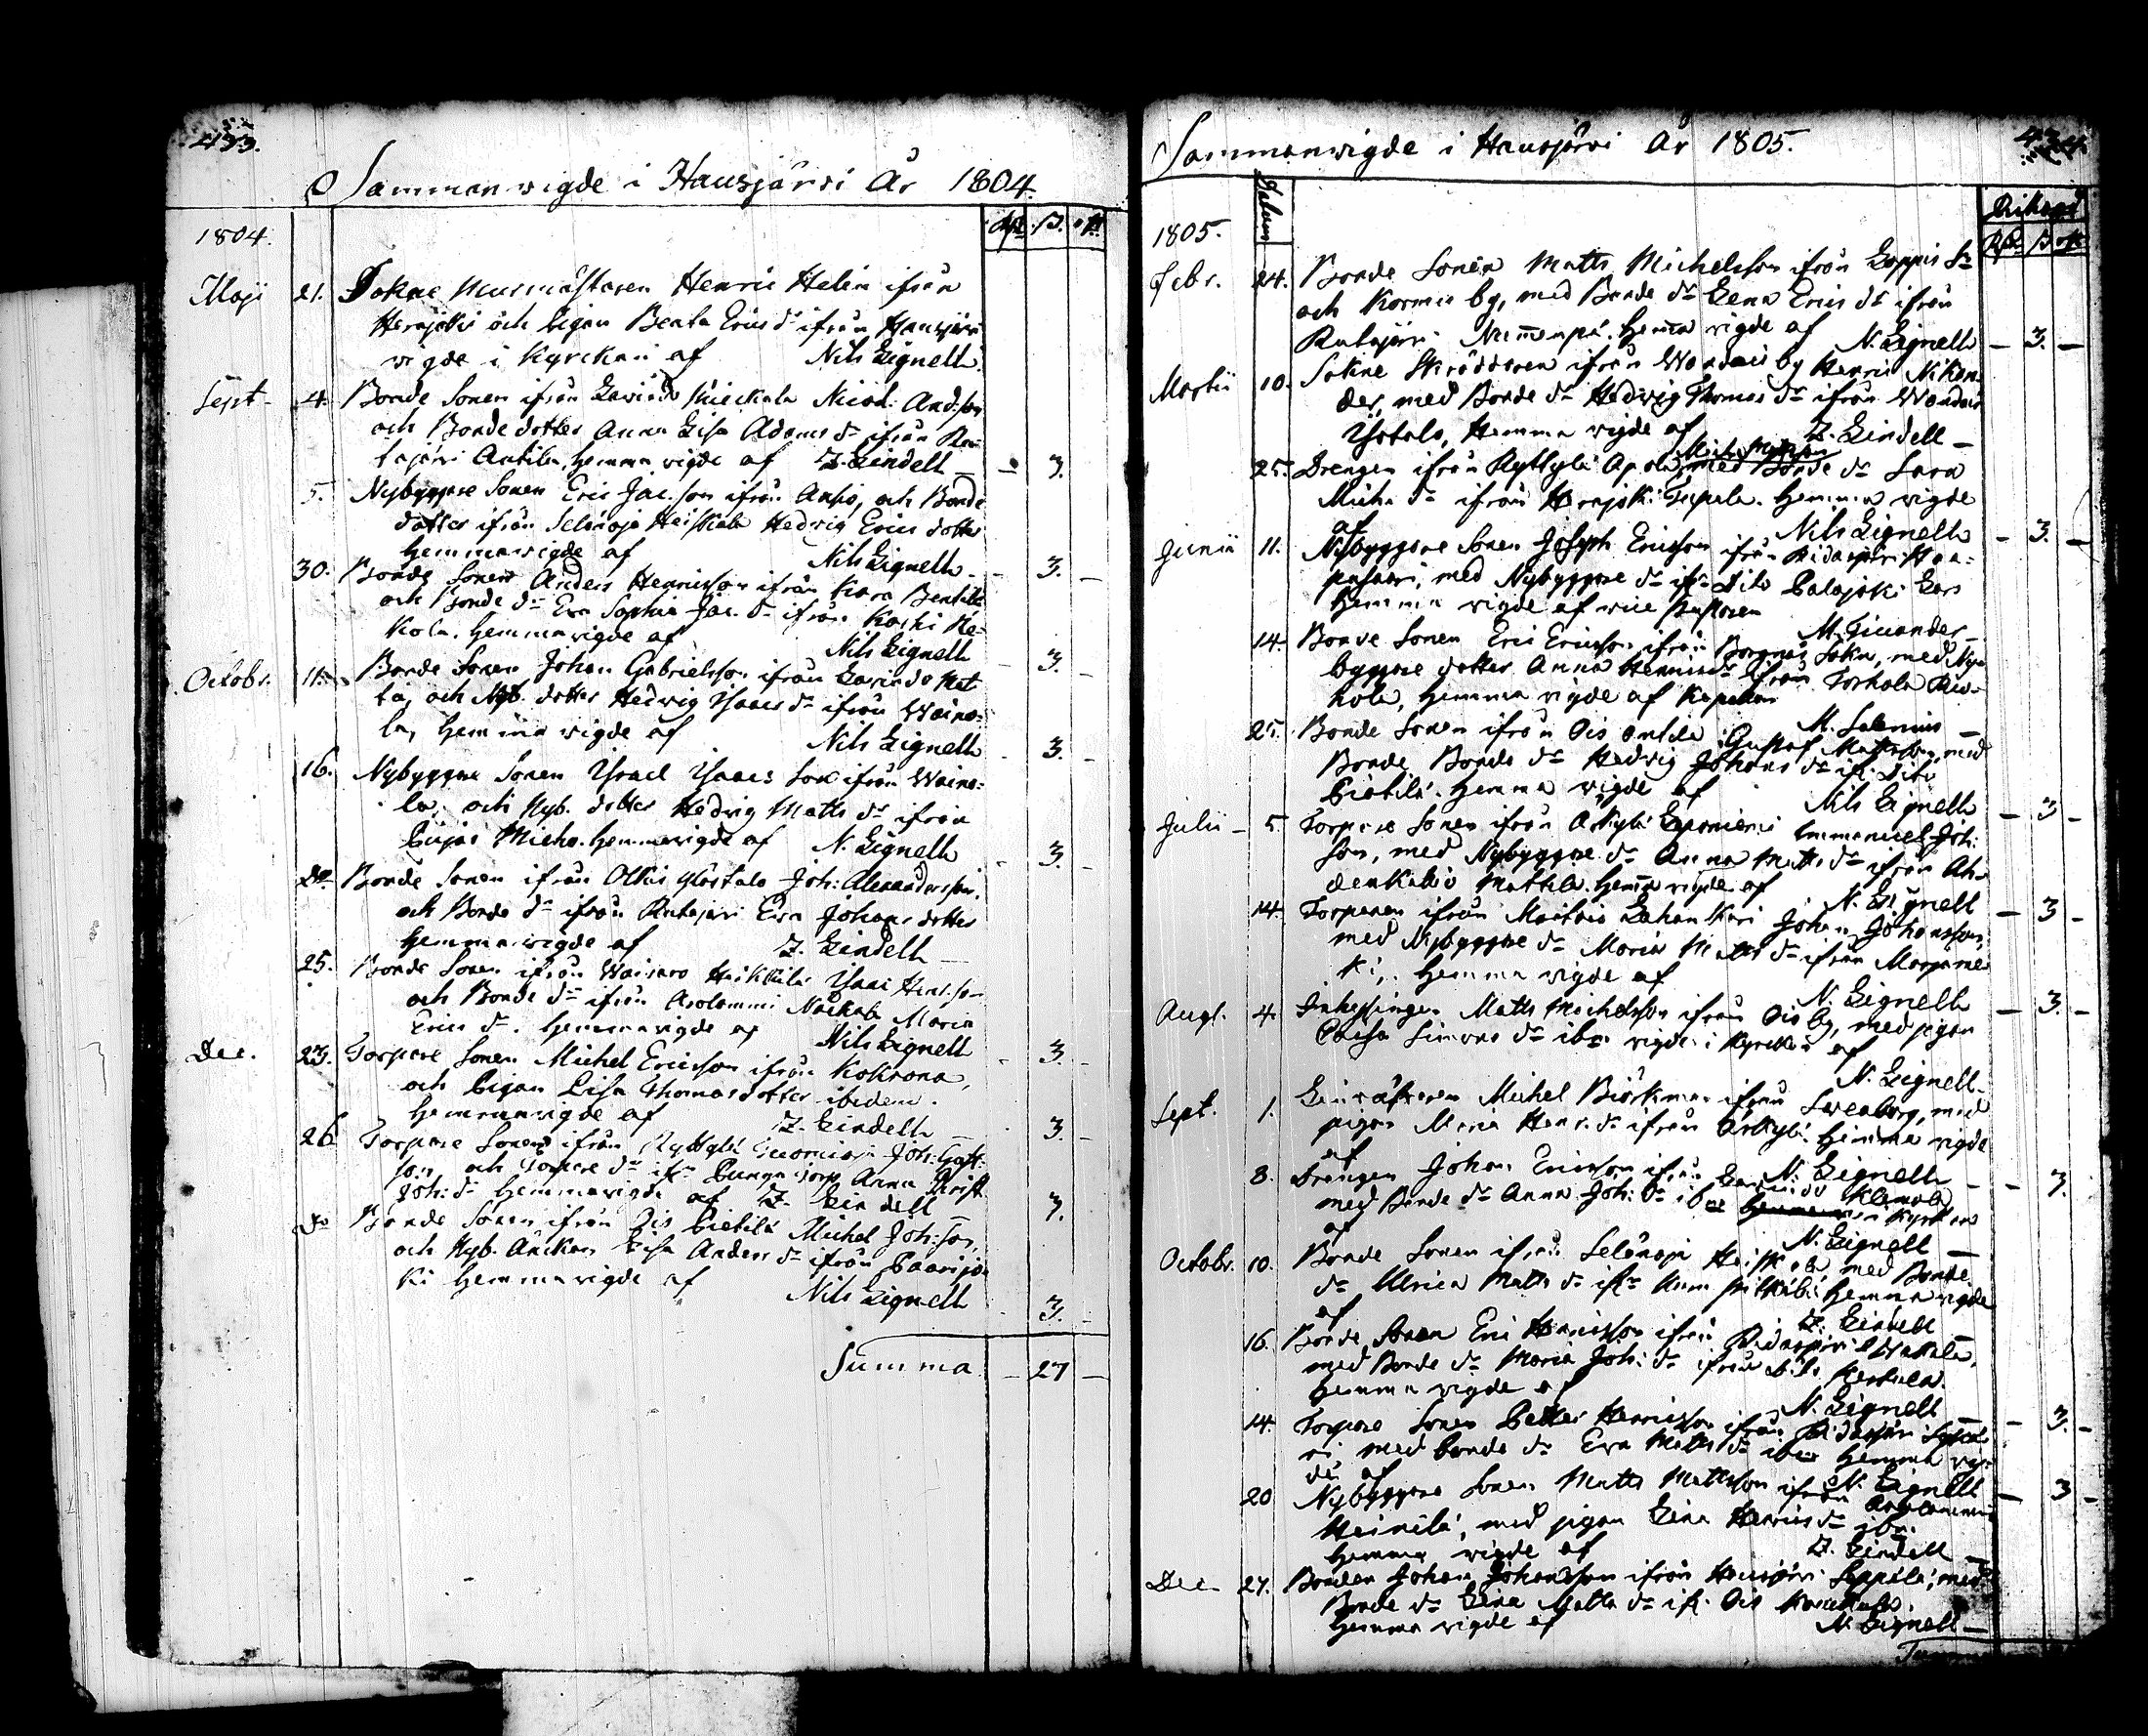 433.
Sammanvigde i Hausjärvi År 1804.
1804.
Rdr ß. rst.
Maji 21. Sokne Murmästaren Henric Helin ifrån
Herajoki och Pigan Beata Erics dr ifrån Hausjärvi
vigde i Kyrckan af Nils Lignell
Sept. 4. Bonde Sonen ifrån Lavindo Nicol. And:son
och Bonde dotter Anna Lisa Adams dr ifrån Ru-
tajärvi Antila, hemma vigde af Z. Lindell — 3.
5. Nybyggare Sonen Eric Jac.son ifrån Ansio, och Bonde
dotter ifrån Selänoja Heiskala Hedvig Erics dotter
hemmavigde af Nils Lignell — 3. —
30. Bonde Sonen Anders Henricsson ifrån Kara Bentilä
och Bonde dr Eva Sophia Jac. dr ifrån Koski He-
kola. hemmavigde af Nils Lignell — 3. —
Octobr. 11. Bonde Sonen Johan Gabrielsson ifrån Lavindo Mat
ta, och Nyb. dotter Hedvig Isaacs dr ifrån Waino-
la, hemma vigde af Nils Lignell — 3. —
16. Nybyggare Sonen Israel Isaacs Son ifrån Waino-
la, och Nyb. dotter Hedvig Matts dr ifrån
Pujas Mieho. hemmavigde af N. Lignell — 3. —
do Bonde Sonen ifrån Oikis Yöstalo Joh: Alexandersson,
och Bonde dr ifrån Rutajärvi Eva Johans dotter
hemmavigde af Z. Lindell —
25. Bonde Sonen ifrån Waivaro Heikkilä Isaac Henr.son
och Bonde dr ifrån Arolammi Maria
Erics dr. hemmavigde af Nils Lignell — 3. —
Dec. 23. Torpare Sonen Michel Ericsson ifrån Kokrona,
och Pigan Lisa Thomasdotter ibidem.
hemmavigde af Z. Lindell — 3. —
26. Torpare Sonen ifrån Ryttylä Joh: Gust:
son, och Torpare dr ifn Punga torp Anna Christ.
Joh: dr hemmavigde af Z. Lindell — 3.
do Bonde Sonen ifrån Ois Pietilä Michel Joh: son,
och Nyb. Änckan Lisa Anders dr ifrån Paarijo-
ki hemmavigde af Nils Lignell — 3. —
Summa — 27 —
434.
Sammanvigde i Hausjärvi År 1805.
1805.
Datum
Riksg.
Rdr ß rst
Febr. 24. Bonde Sonen Matts Michelsson ifrån Loppis Sn
och Kormu by, med Bonde dr Lena Erics dr ifrån
Rutajärvi Nummenpä. hemma vigde af N. Lignell — 3. —
Martii 10. Sokne Skräddaren ifrån Wantais by Henric Niklan-
der, med Bonde dr Hedvig Thomas dr ifrån Wantais
Ystalo, hemma vigde af Z. Lindell —
25. Drengen ifrån Ryttylä Michel Mattsson med Bonde dr Sara
Mich. dr ifrån Herajoki Tupala. hemma vigde
af Nils Lignell — 3. —
Junii 11. Nybyggare Sonen Joseph Ericsson ifrån Ridasjärvi Haa-
pasaari, med Nybyggare dr ifn dito Palojoki Lars
hemma vigde af vice Pastoren M. Finander —
14. Bonde Sonen Eric Ericsson ifrån Borgnäs Sokn, med Ny-
byggare dotter Anna Henrics dr ifrån Torhola
kola, hemma vigde af Kapellan M. Salenius —
25. Bonde Sonen ifrån Ois Antila Gustaf Mattsson, med
Bonde Bonde dr Hedvig Johans dr ifr. dito
Pietilä. hemma vigde af Nils Lignell — 3 —
Julii 5. Torpare Sonen ifrån Arkylä Emmanuel Joh:
son, med Nybyggare dr Anna Matts dr ifrån Ah-
denkalio Mattila. hemma vigde af N. Lignell — 3 —
14. Torparen ifrån Mortois Johan Johansson,
med Nybyggare dr Maria Matts dr ifrån Marjamä-
ki, hemma vigde af N. Lignell — 3. —
Aug. 4. Inhysingen Matts Michelsson ifrån Ois by, med pigan
Caisa Simons dr ibm vigde i Kyrckan af
N. Lignell —
Sept. 1. Linväfvaren Michel Biörkman ifrån Sveaborg, med
pigan Maria Henr. dr ifrån Arkylä hemma vigde
af N. Lignell — 3.
8. Drengen Johan Ericsson ifrån Lavindo Klemola
med Bonde dr Anna Joh: dr ibm i Kyrckan
af N. Lignell —
Octobr. 10. Bonde Sonen ifrån Selänoja Heiskala med Bonde
dr Ulrica Matts dr ifn hemma vigde
af Z. Lindell
16. Bonde Sonen Eric Henricsson ifrån Ridasjärvi
med Bonde dr Maria Joh: dr ifrån dito
hemma vigde af N. Lignell — 3. —
14. Torpare Sonen Petter Henricsson ifrån Ridasjärvi
med Bonde dr Eva Matts dr ibm hemma vig-
de af N. Lignell — 3 —
20 Nybyggare Sonen Matts Mattsson ifrån Arolammi
Heinilä, med pigan Lena Henrics dr ibm.
hemma vigde af Z. Lindell —
Dec. 27. Bonden Johan Johansson ifrån Hausjärvi Seppälä, med
Bonde dr Lena Matts dr ifr. Ois
hemma vigde af N. Lignell —